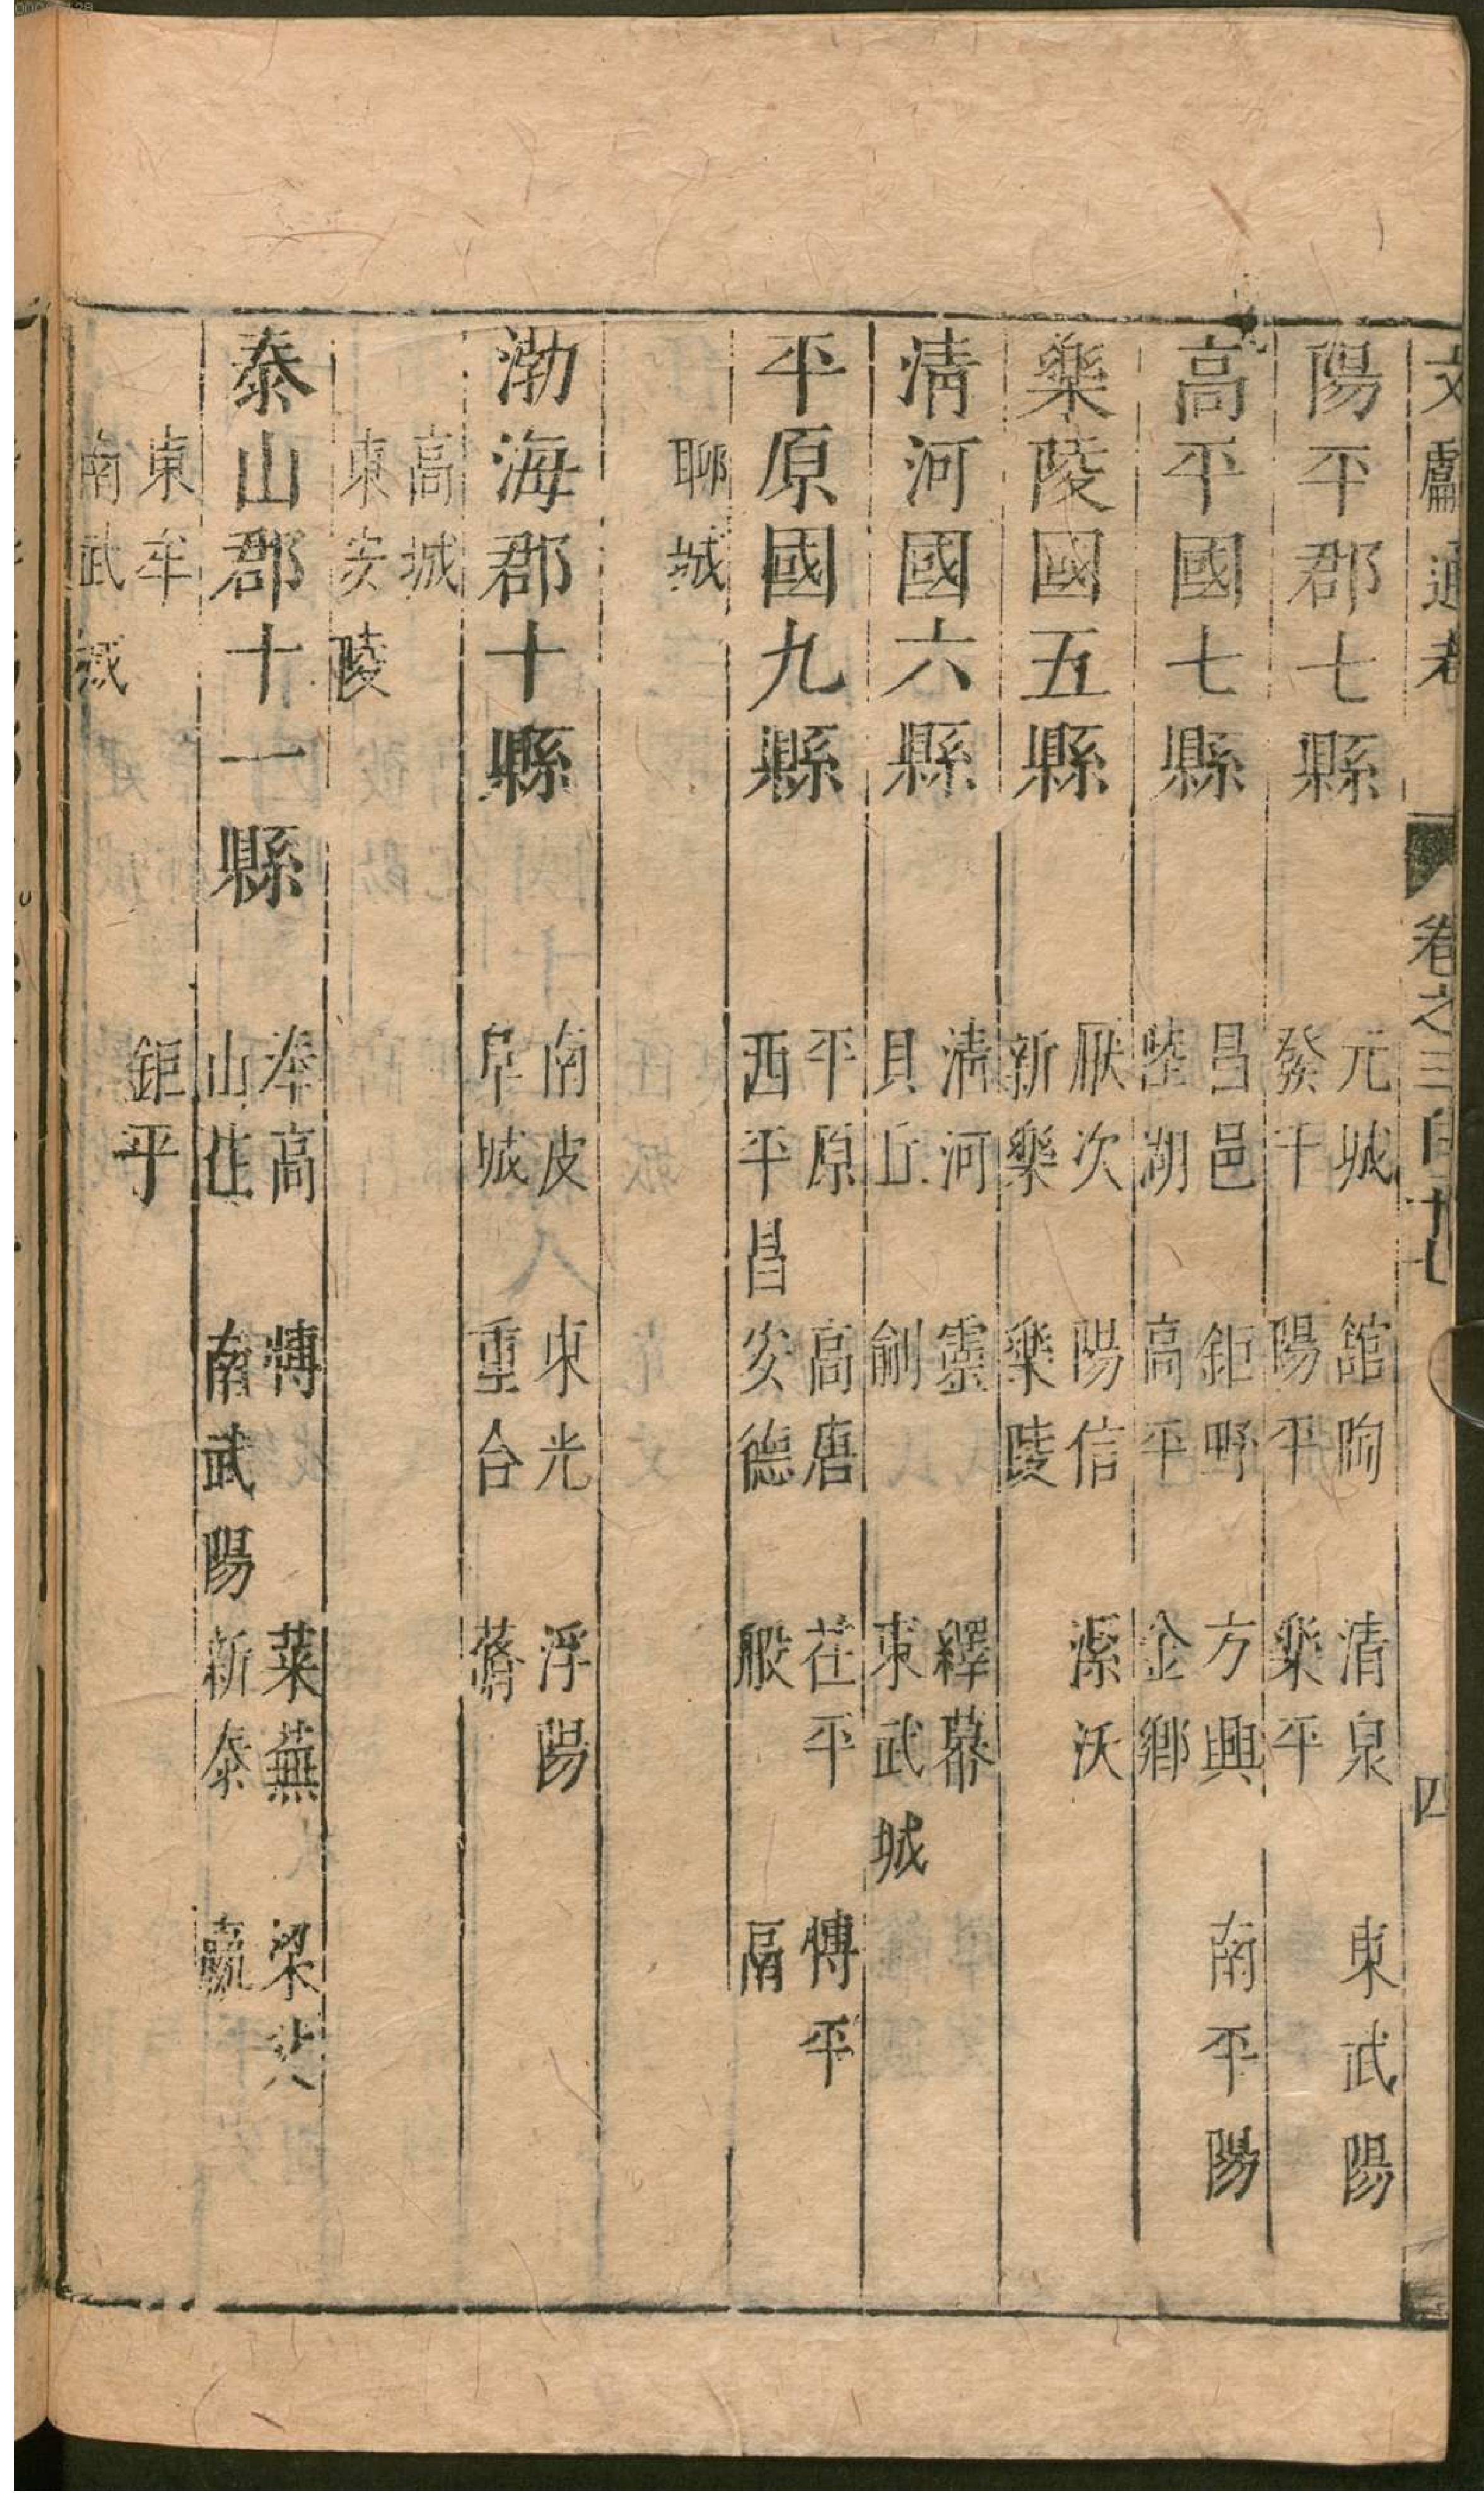 文獻通考 卷之三百十七 四
陽平郡七縣 元城 館陶 清泉 東武陽
發干 陽平 樂平
高平國七縣 昌邑 鉅野 方興 南平陽
陸湖 高平 金鄉
樂陵國五縣 厭次 陽信 漯沃
新樂 樂陵
清河國六縣 清河 靈 繹幕
貝丘 鄃 東武城
平原國九縣 平原 高唐 茌平 博平
西平昌 安德 般 鬲
聊城
渤海郡十縣 南皮 東光 浮陽
阜城 重合 蓨
高城
東安陵
泰山郡十一縣 奉高 博 萊蕪 梁父
山茌 南武陽 新泰 嬴
東牟 鉅平
南武城